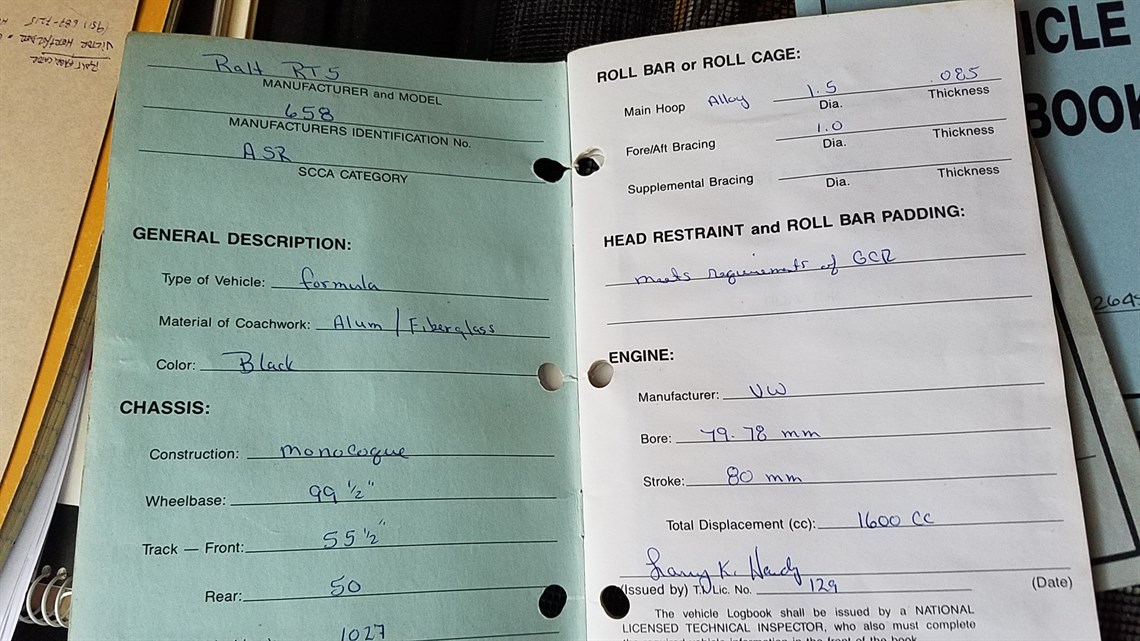 (951) 687-7215
VICTOR
Ralt RT5
MANUFACTURER and MODEL
658
MANUFACTURERS IDENTIFICATION No.
ASR
SCCA CATEGORY
GENERAL DESCRIPTION:
Type of Vehicle: formula
Material of Coachwork: Alum / Fiberglass
Color: Black
CHASSIS:
Construction: monocoque
Wheelbase: 99 1/2"
Track — Front: 55 1/2"
Rear: 50
1027
ROLL BAR or ROLL CAGE:
Main Hoop Alloy 1.5 .085
Dia. Thickness
Fore/Aft Bracing 1.0
Dia. Thickness
Supplemental Bracing
Dia. Thickness
HEAD RESTRAINT and ROLL BAR PADDING:
meets requirements of GCR
ENGINE:
Manufacturer: VW
Bore: 79.78 mm
Stroke: 80 mm
Total Displacement (cc): 1600 cc
Larry K.
(Issued by) T.N Lic. No. 129 (Date)
The vehicle Logbook shall be issued by a NATIONAL
LICENSED TECHNICAL INSPECTOR, who also must complete
the required vehicle information in the front of the book
ICLE
BOOK
264